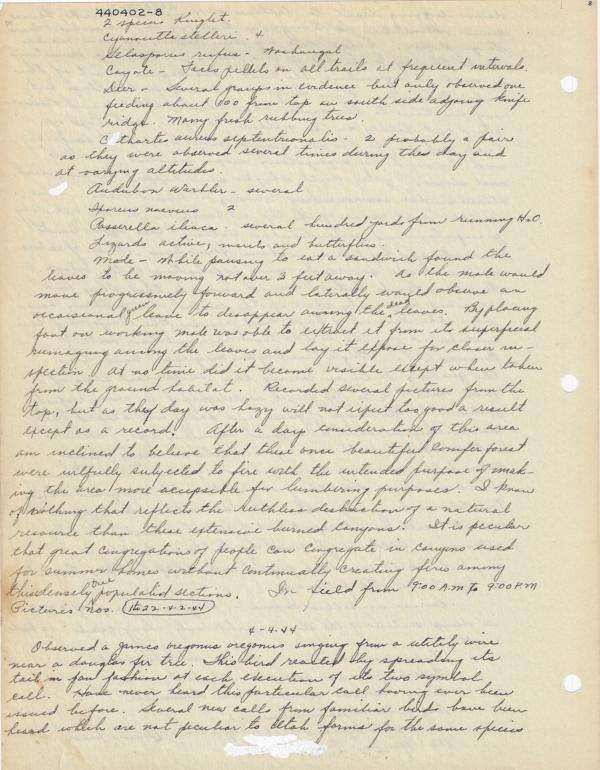 440402-8
8
2 species Knight.
Cyanocitta stelleri. 4
Selasporus rufus - Washougal
Coyote - Faces pellets on all trails at frequent intervals.
Deer - Several groups in evidence but only observed one
feeding about 100 from top on south side adjoing knife
ridge. Many fresh rubbing trees.
Cathartes aurus septentrionalis - 2 probably a pair
as they were observed several times during the day and
at varying altitudes.
Audubon Warbler - several
Ixoreus naevius 2
Passerella iliaca. several hundred yards from running H2O.
Lizards active, and butterflies.
Mole - While pausing to eat a sandwich found the
leaves to be moving not over 3 feet away. As the mole would
move progressively forward and laterally would observe an
occaisional green leave to dissapear among the dead leaves. By placing
foot on working mole was able to extract it from its superficial
rumaging among the leaves and lay it expose for closer in-
spection. At no time did it become visible except when taken
from the ground habitat. Recorded several pictures from the
top, but as they day was hazy will not expect too good a result
except as a record. After a days consideration of this area
am inclined to believe that these once beautiful conifer forest
were wilfully subjected to fire with the intended purpose of mak-
ing the area more accessible for lumbering purposes. I know
of nothing that reflects the ruthless destruction of a natural
resource than these extensive burned canyons. It is peculiar
that great congregations of people can congregate in canyons used
for summer homes without continually creating fires among
this densely tree populated sections. In field from 9:00 A.M to 9:00 P.M
Pictures Nos. 16-22 - 4-2-44
4-4-44
Observed a Junco oregonus oregonus singing from a utility wire
near a douglas fir tree. This bird reacted by spreading its
tail in fan fashion at each execution of its two symbol
call. Have never heard this particular call having ever been
issued before. Several new calls from familiar birds have been
heard which are not peculiar to Utah forms for the same species